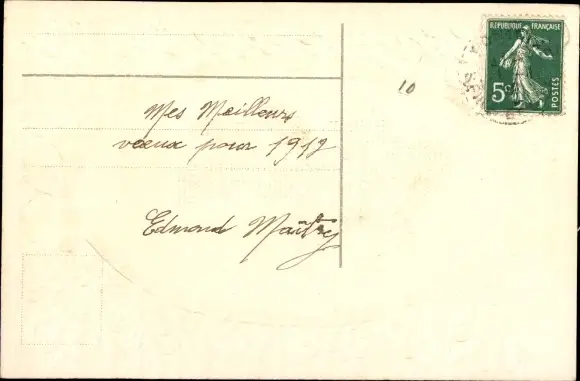 Mes Meilleurs
vœux pour 1912
Edmond
10
REPUBLIQUE FRANÇAISE
5c
POSTES